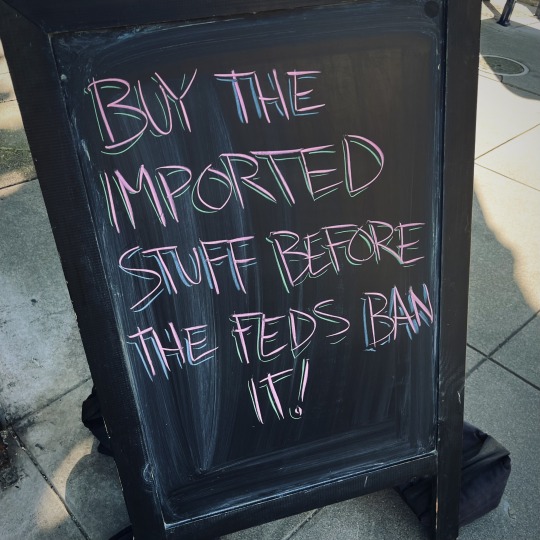 BUY THE
IMPORTED
STUFF BEFORE
THE FEDS BAN
IT!